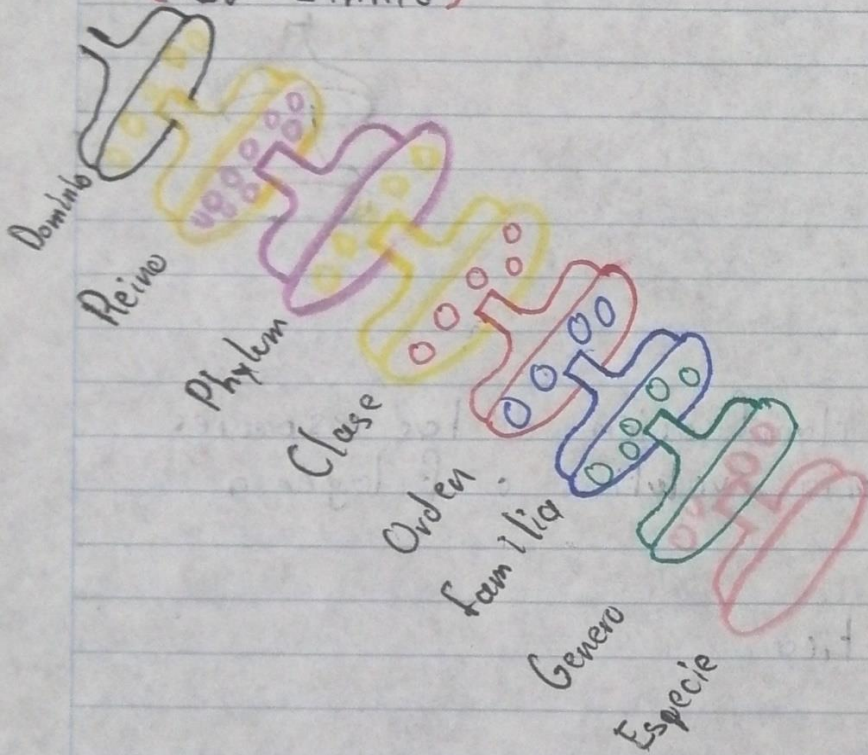 Dominio
Reino
Phylum
Clase
Orden
familia
Genero
Especie